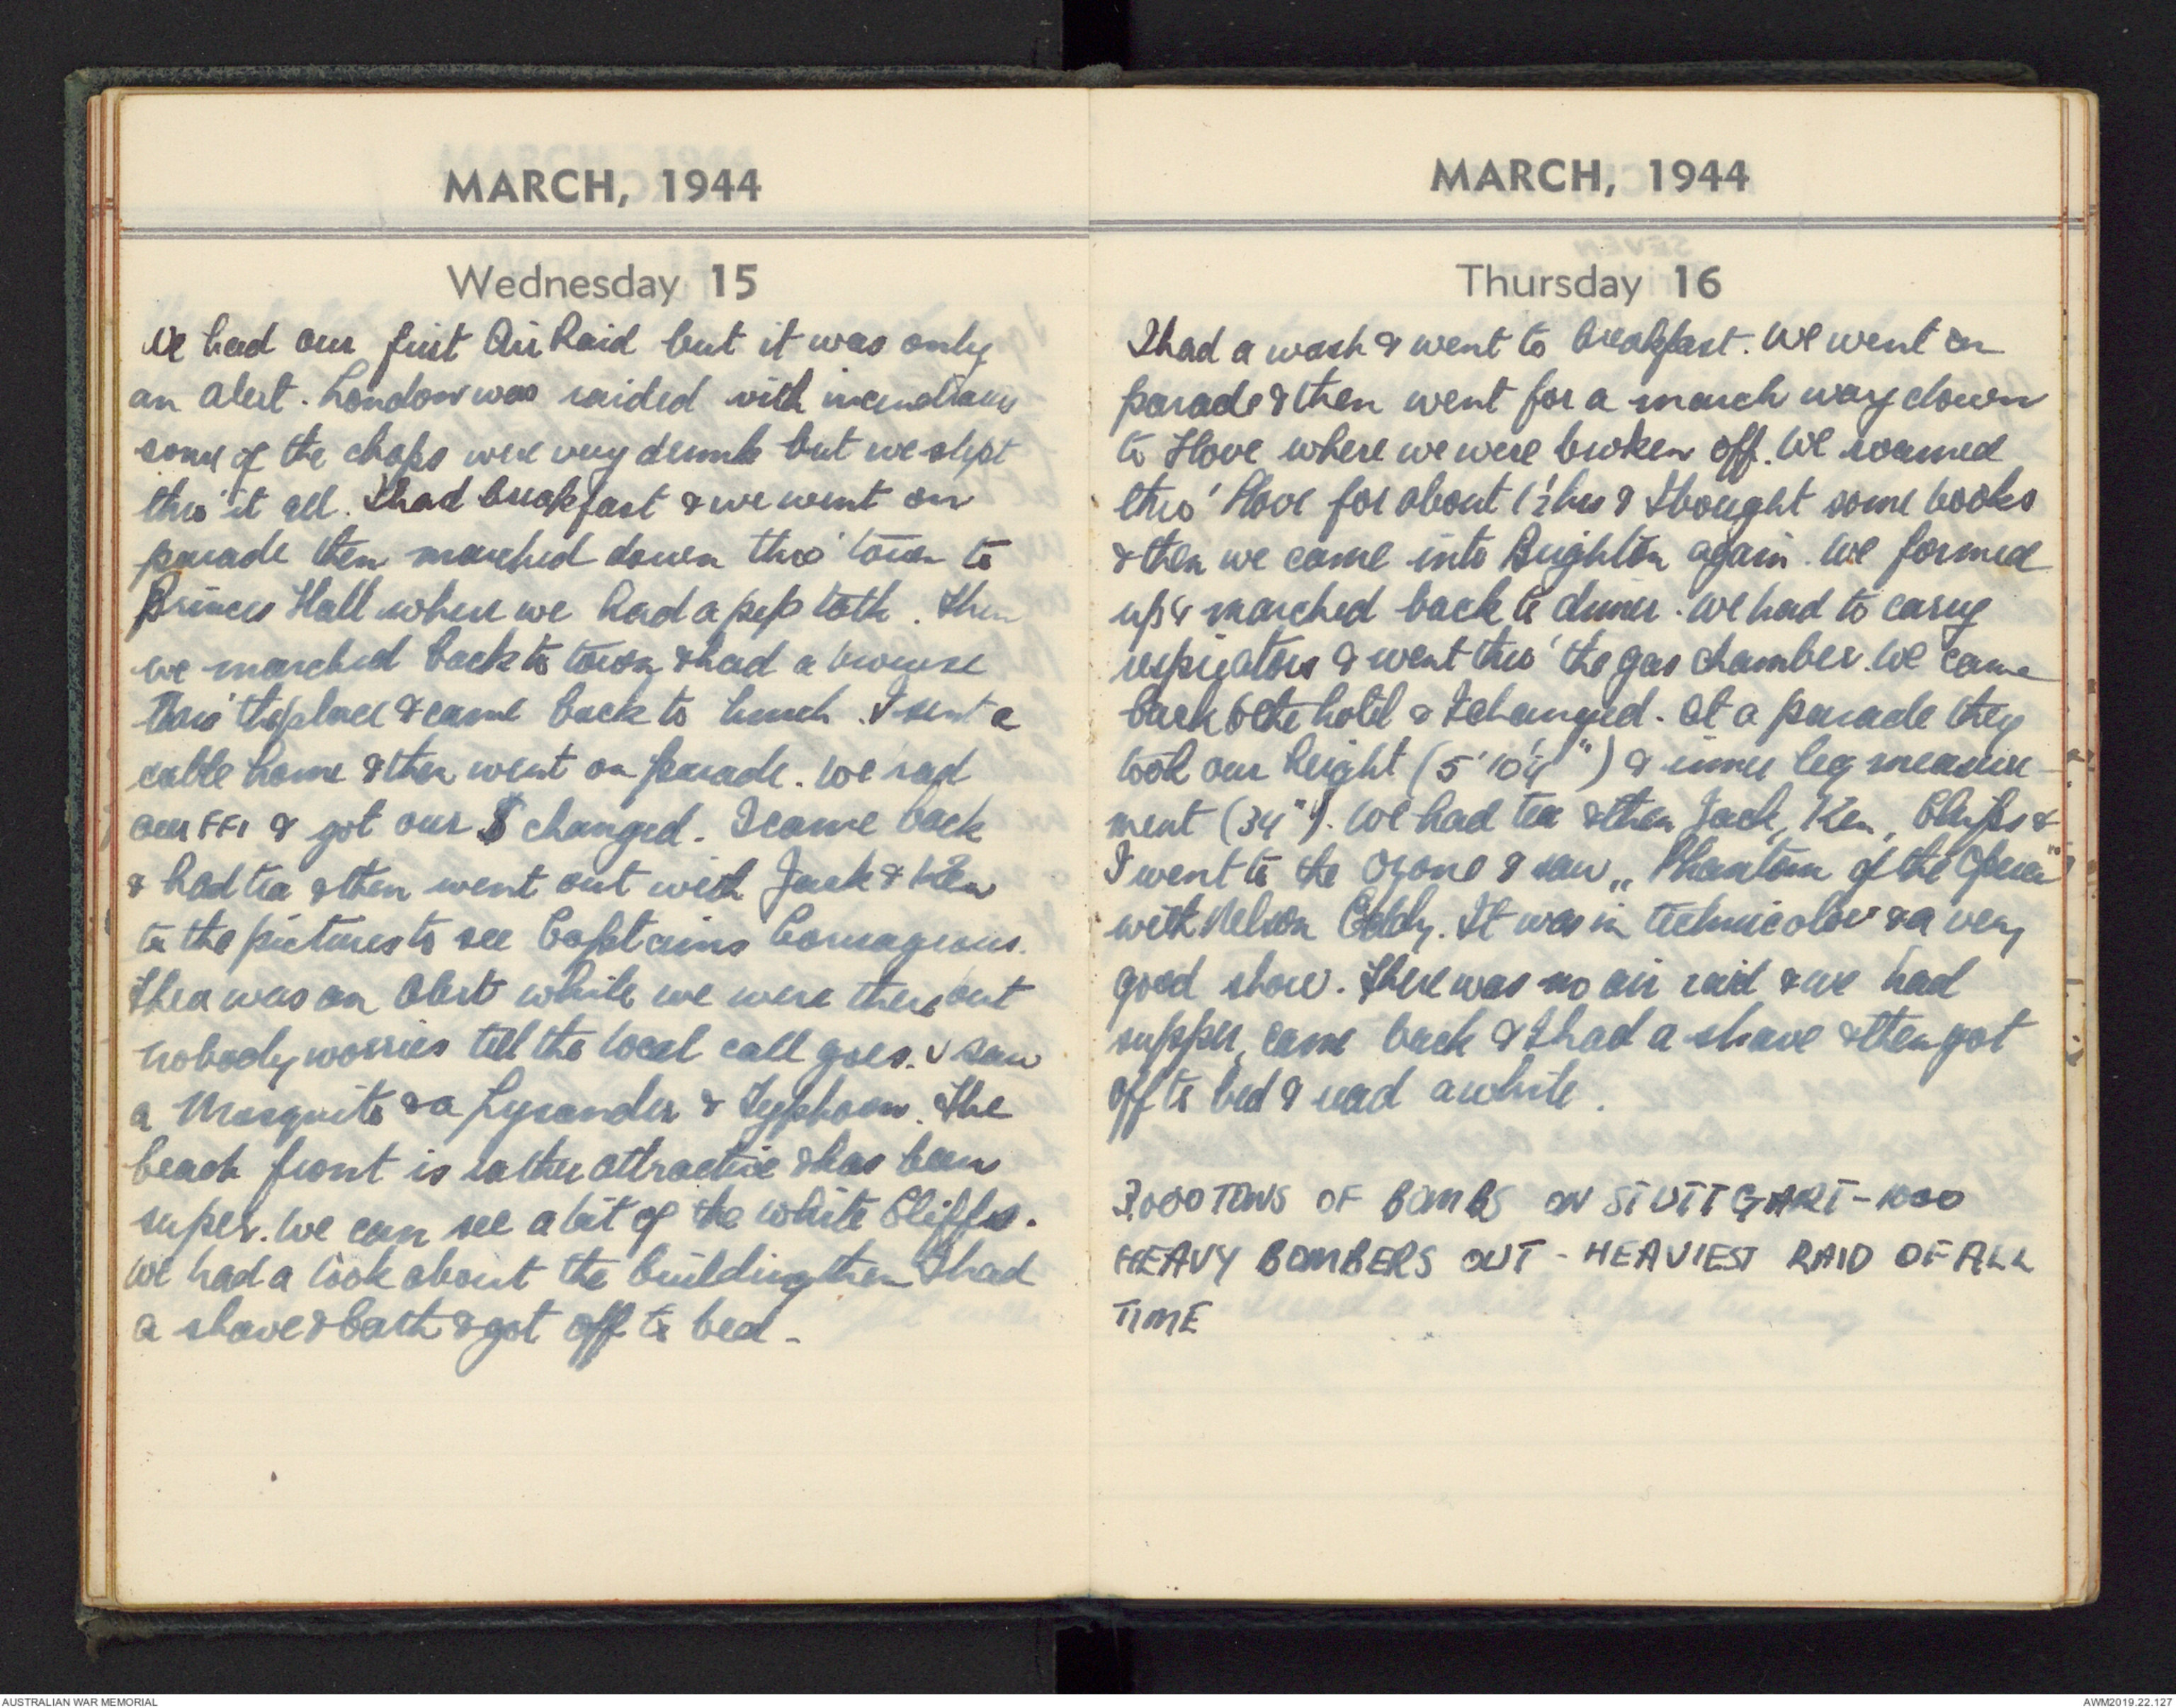 MARCH, 1944
Wednesday 15
We had our first Air Raid but it was only
an alert. London was raided with incendiaries
some of the chaps were very drunk but we slept
thro' it all. I had breakfast & we went on
parade then marched down thro' town to
Princes Hall where we had a pep talk. Then
we marched back to town & had a browse
thro' the place & came back to lunch. I sent a
cable home & then went on parade. We had
our FFI & got our $ changed. I came back
& had tea & then went out with Jack & Ken
to the pictures to see Captains Courageous.
There was an alert while we were there but
nobody worries till the local call goes. I saw
a Mosquito & a Lysander & Typhoon. The
beach front is rather attractive & has been
super. We can see a bit of the white Cliffs.
We had a look about the building then I had
a shave & bath & got off to bed -
MARCH, 1944
Thursday 16
I had a wash & went to breakfast. We went on
parade & then went for a march way down
to Hove where we were broken off. We roamed
thro' Hove for about 1½ hrs & I bought some books
& then we came into Brighton again. We formed
up & marched back to dinner. We had to carry
respirators & went thro' the gas chamber. We came
back to the hotel & I changed. At a parade they
took our height (5' 10¼") & inner leg measure-
ment (34"). We had tea & then Jack, Ken, Chips &
I went to the Ozone & saw "Phantom of the Opera"
with Nelson Eddy. It was in technicolor & a very
good show. There was no air raid & we had
supper, came back & I had a shave & then got
off to bed & read awhile.
3,000 TONS OF BOMBS ON STUTTGART - 1000
HEAVY BOMBERS OUT - HEAVIEST RAID OF ALL
TIME
AUSTRALIAN WAR MEMORIAL
AWM2019.22.127